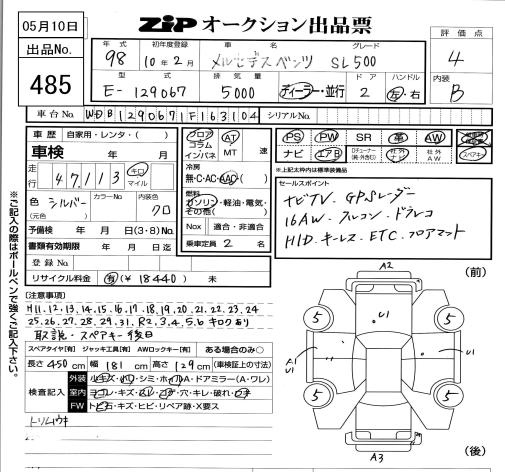 05月10日
ZIP オークション出品票
出品No.
485
年式 初年度登録 車名 グレード
98 10年2月 メルセデスベンツ SL500
型式 排気量 ドア ハンドル
E-129067 5000 ディーラー・並行 2 左・右
評価点
4
内装
B
車台No. WDB1290671F163104 シリアルNo.
車歴 自家用・レンタ・( )
車検 年 月
走行 47,113 キロ マイル
色 シルバー カラーNo. 内装色 クロ
(元色)
予備検 年 月 日(3・8)No.
書類有効期限 年 月 日迄
登録No.
リサイクル料金 有(¥18440) 未
フロア コラム インパネ AT MT 速
冷房
無・C・AC・AAC
燃料
ガソリン・軽油・電気・その他( )
Nox 適合・非適合
乗車定員 2 名
PS PW SR 革 AW
ナビ エアB 社外ナビ 社外AW スペアキー
※上記太枠内は標準装備品
セールスポイント
ナビTV. GPSレーダー
16AW. アルコン. ドラレコ
HID. キーレス. ETC. フロアマット
※ご記入の際はボールペンで強くご記入下さい。
[注意事項]
H11.12.13.14.15.16.17.18.19.20.21.22.23.24
25.26.27.28.29.31.R2.3.4.5.6 キロクあり
取説・スペアキー後日
スペアタイヤ[有] ジャッキ工具[有] AWロックキー[有] ある場合のみ○
長さ 450 cm 幅 181 cm 高さ 129 cm (車検証上の寸法)
検査記入
外装 ルキズ・凹・シミ・ホイールA・ドアミラー(A・ワレ)
室内 ヨゴレ・キズ・スレ・コゲ・穴・キレ・破れ・ウキ
FW トビ石・キズ・ヒビ・リペア跡・X要ス
トリムウキ
(前)
A2
5 5
U1
A1
U1
U1
5 5
A3
(後)